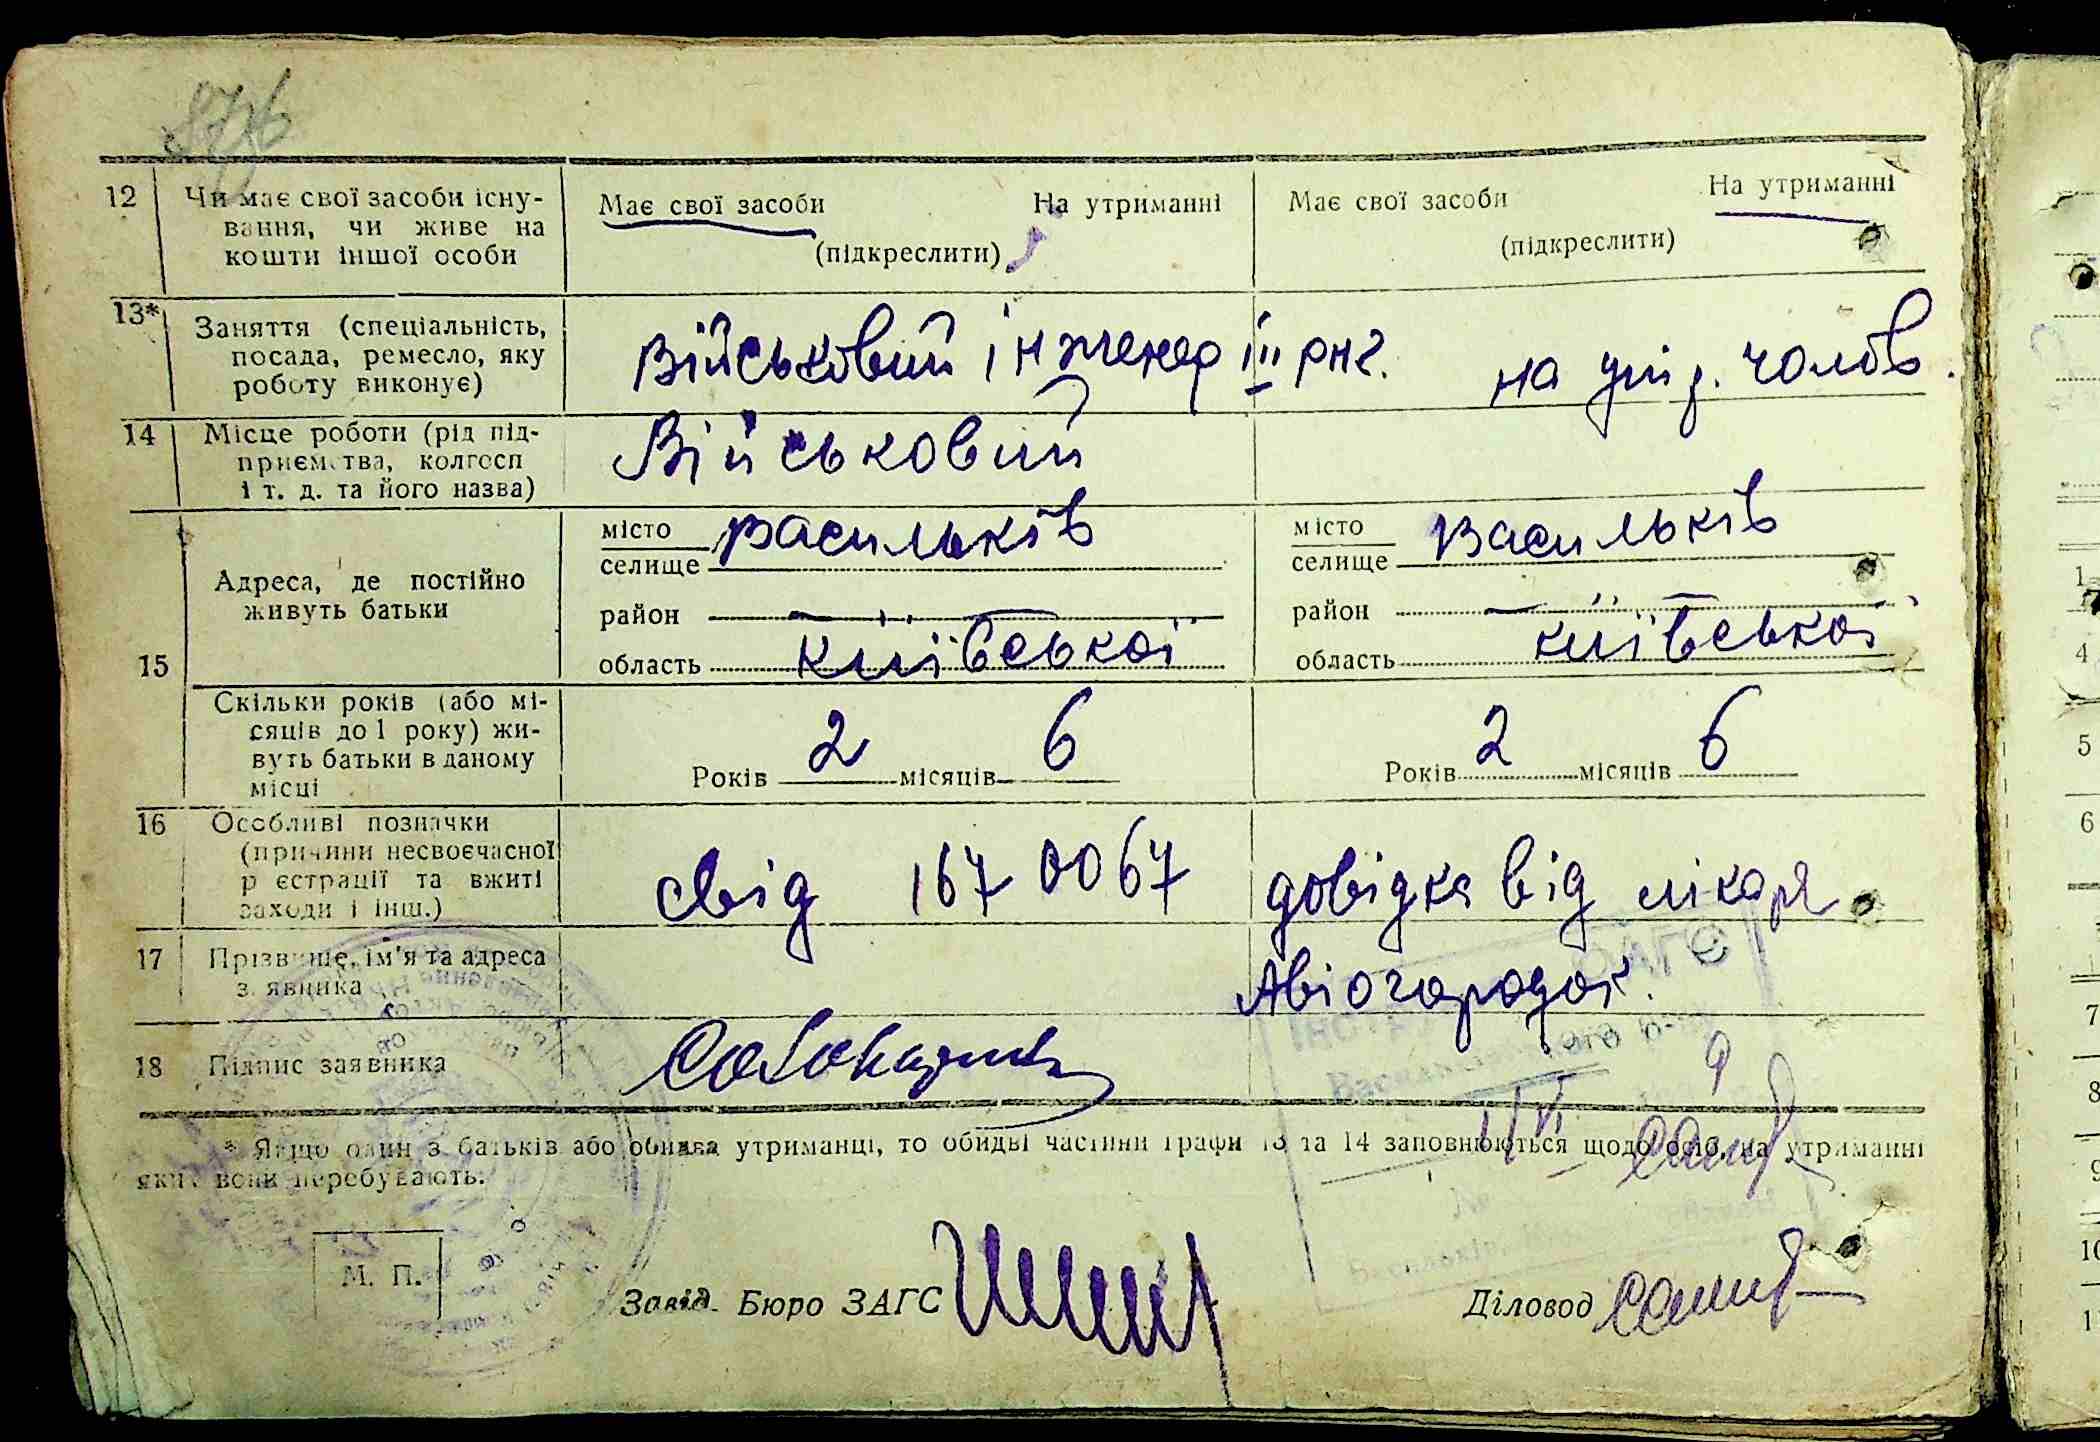 12 Чи має свої засоби існу-
вання, чи живе на
кошти іншої особи
Має свої засоби На утриманні
(підкреслити)
Має свої засоби На утриманні
(підкреслити)
13* Заняття (спеціальність,
посада, ремесло, яку
роботу виконує)
Військовий інженер III рнг.
на утр. чолов.
14 Місце роботи (рід під-
приємства, колгосп
і т. д. та його назва)
Військовий
15
Адреса, де постійно
живуть батьки
місто Васильків
селище
район
область Київської
місто Васильків
селище
район
область Київської
Скільки років (або мі-
сяців до 1 року) жи-
вуть батьки в даному
місці
Років 2 місяців 6
Років 2 місяців 6
16 Особливі позначки
(причини несвоєчасної
р єстрації та вжиті
заходи і інш.)
свід 167 0067
довідка від лікаря
17 Прізвище, ім'я та адреса
з явника
Авіогородок.
18 Підпис заявника
* Якщо один з батьків або обидва утриманці, то обидві частини графи 13 та 14 заповнюються щодо осіб, на утриманні
яких вони перебувають.
М. П.
Завід. Бюро ЗАГС
Діловод
1
4
5
6
7
8
9
10
1